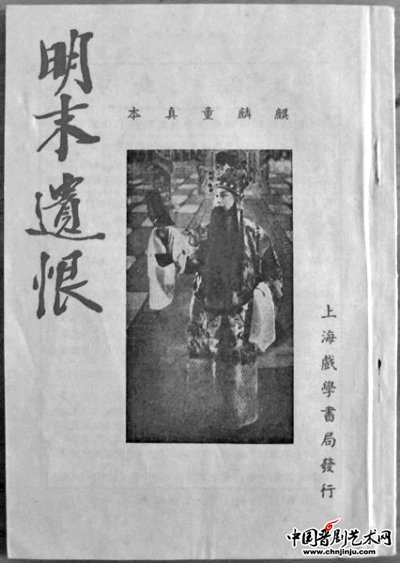 明末遺恨
麒麟童真本
上海戲學書局發行
中国晋剧艺术网
www.chnjinju.com